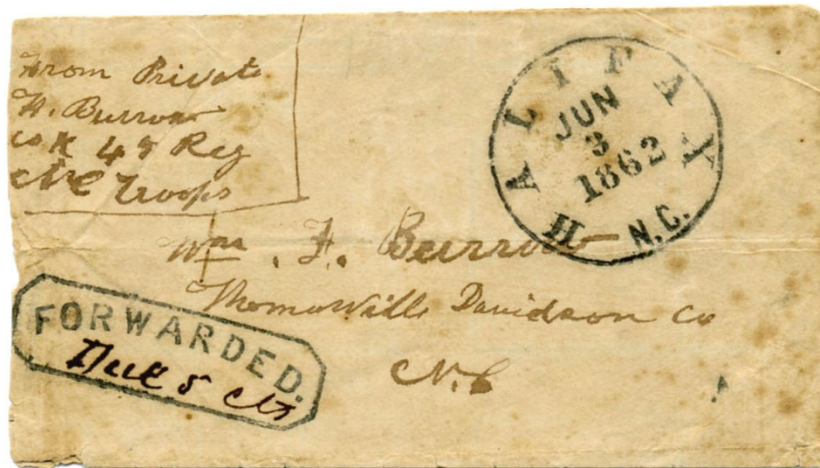 From Private
H. Burrow
Co K 48 Reg
N C Troops
HALIFAX
JUN
3
1862
N.C.
Wm. F. Burrow
Thomasville Davidson Co
N.C
FORWARDED.
Due 5 cts